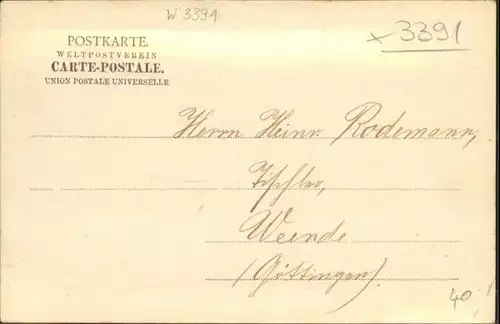 W 3391
x 3391
POSTKARTE.
WELTPOSTVEREIN
CARTE-POSTALE.
UNION POSTALE UNIVERSELLE
Herrn Heinr. Rodemann,
Tischler,
Weende
(Göttingen).
40,